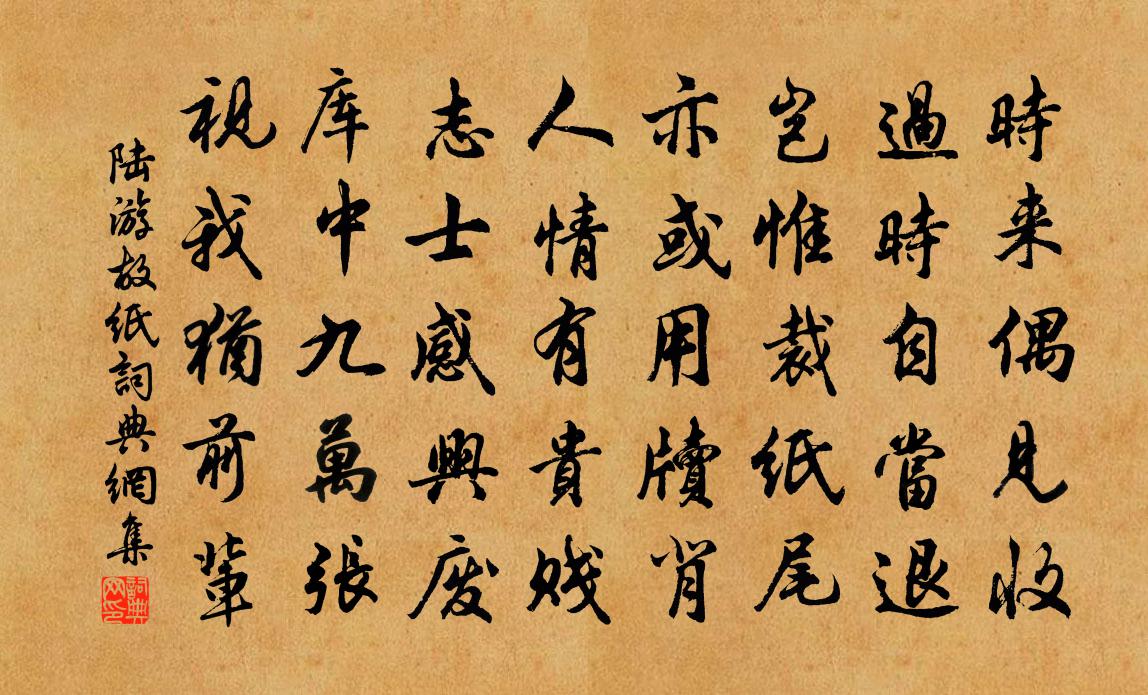 時来偶見收
過時自當退
豈惟裁紙尾
亦或用牘背
人情有貴賤
志士感興废
库中九萬張
視我猶前輩
陆游故紙詞典網集
詞典网印